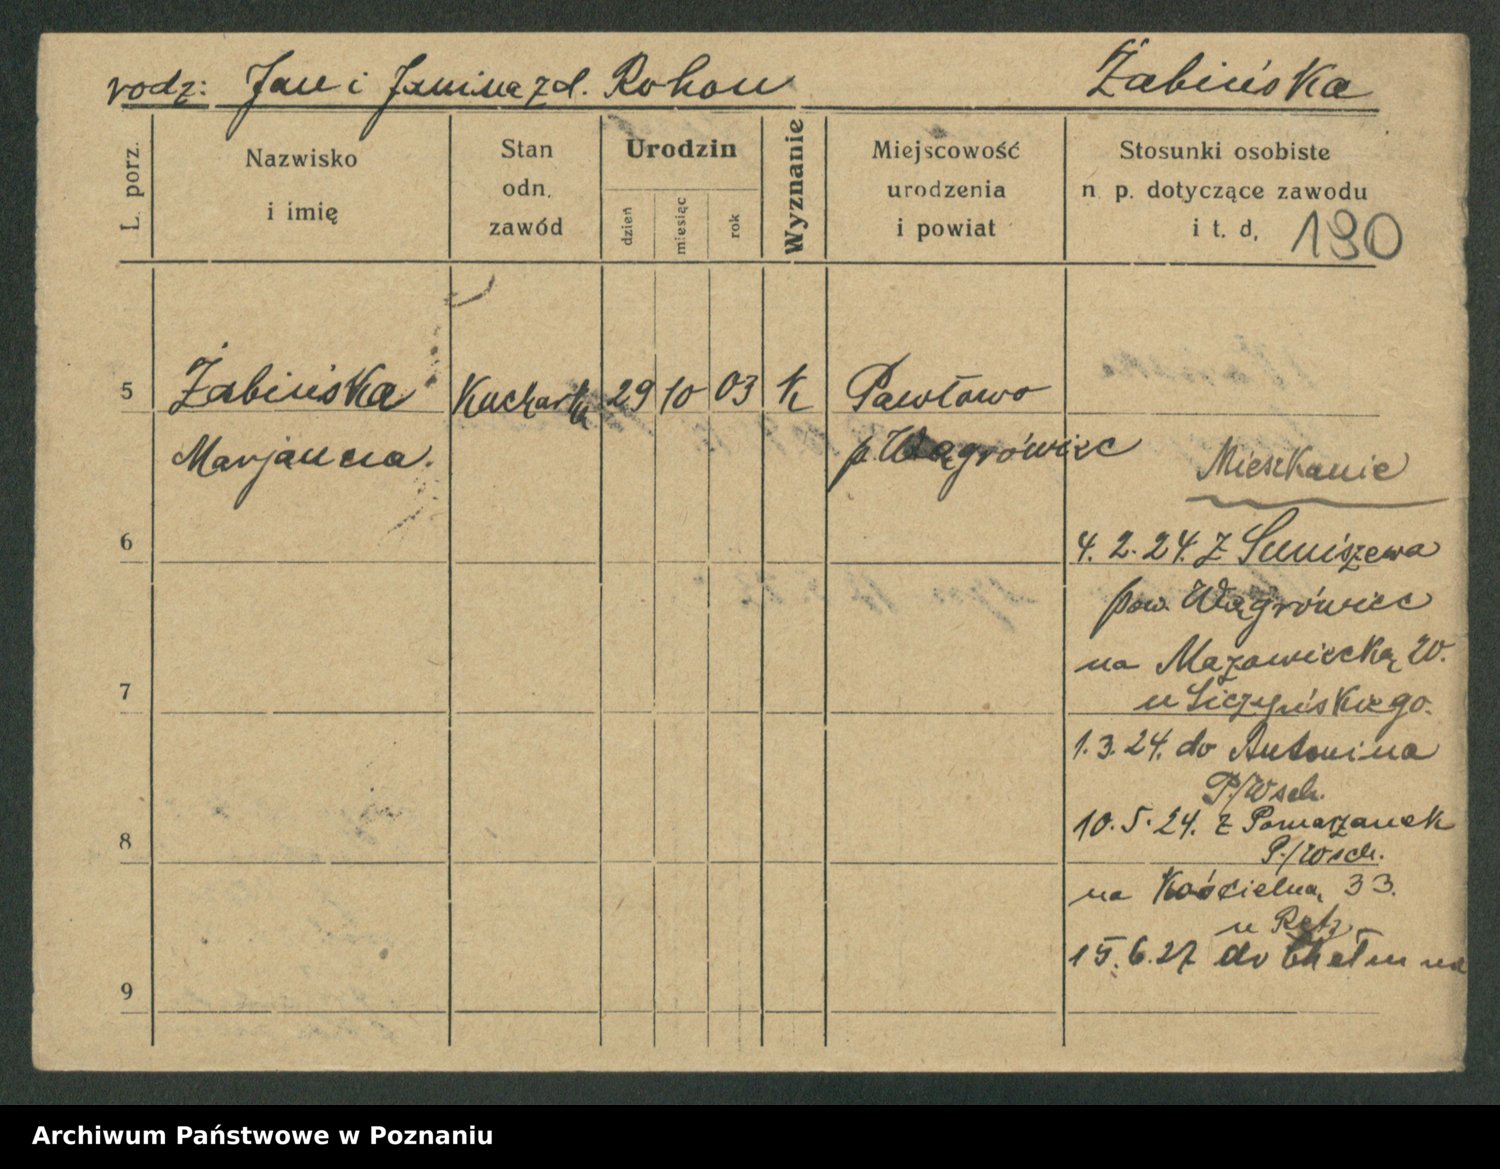 rodz: Jan i Janina z d. Rohon Żabińska
L. porz.
Nazwisko
i imię
Stan
odn.
zawód
Urodzin
dzień
miesiąc
rok
Wyznanie
Miejscowość
urodzenia
i powiat
Stosunki osobiste
n p. dotyczące zawodu
i t. d,
190
5 Żabińska Kucharka 29 10 03 k Pawłowo
Marjanna. p. Wągrówiec
Mieszkanie
6 4. 2. 24. z
pow. Wągrówiec
na Mazowiecką 20.
7 u Liczyńskiego.
1. 3. 24. do Antonina
P./Wsch.
8 10. 5. 24. z Pomarzanek
P./Wsch.
na Kościelną 33.
u Retz
15. 6. 27 do Chełm na
9
Archiwum Państwowe w Poznaniu